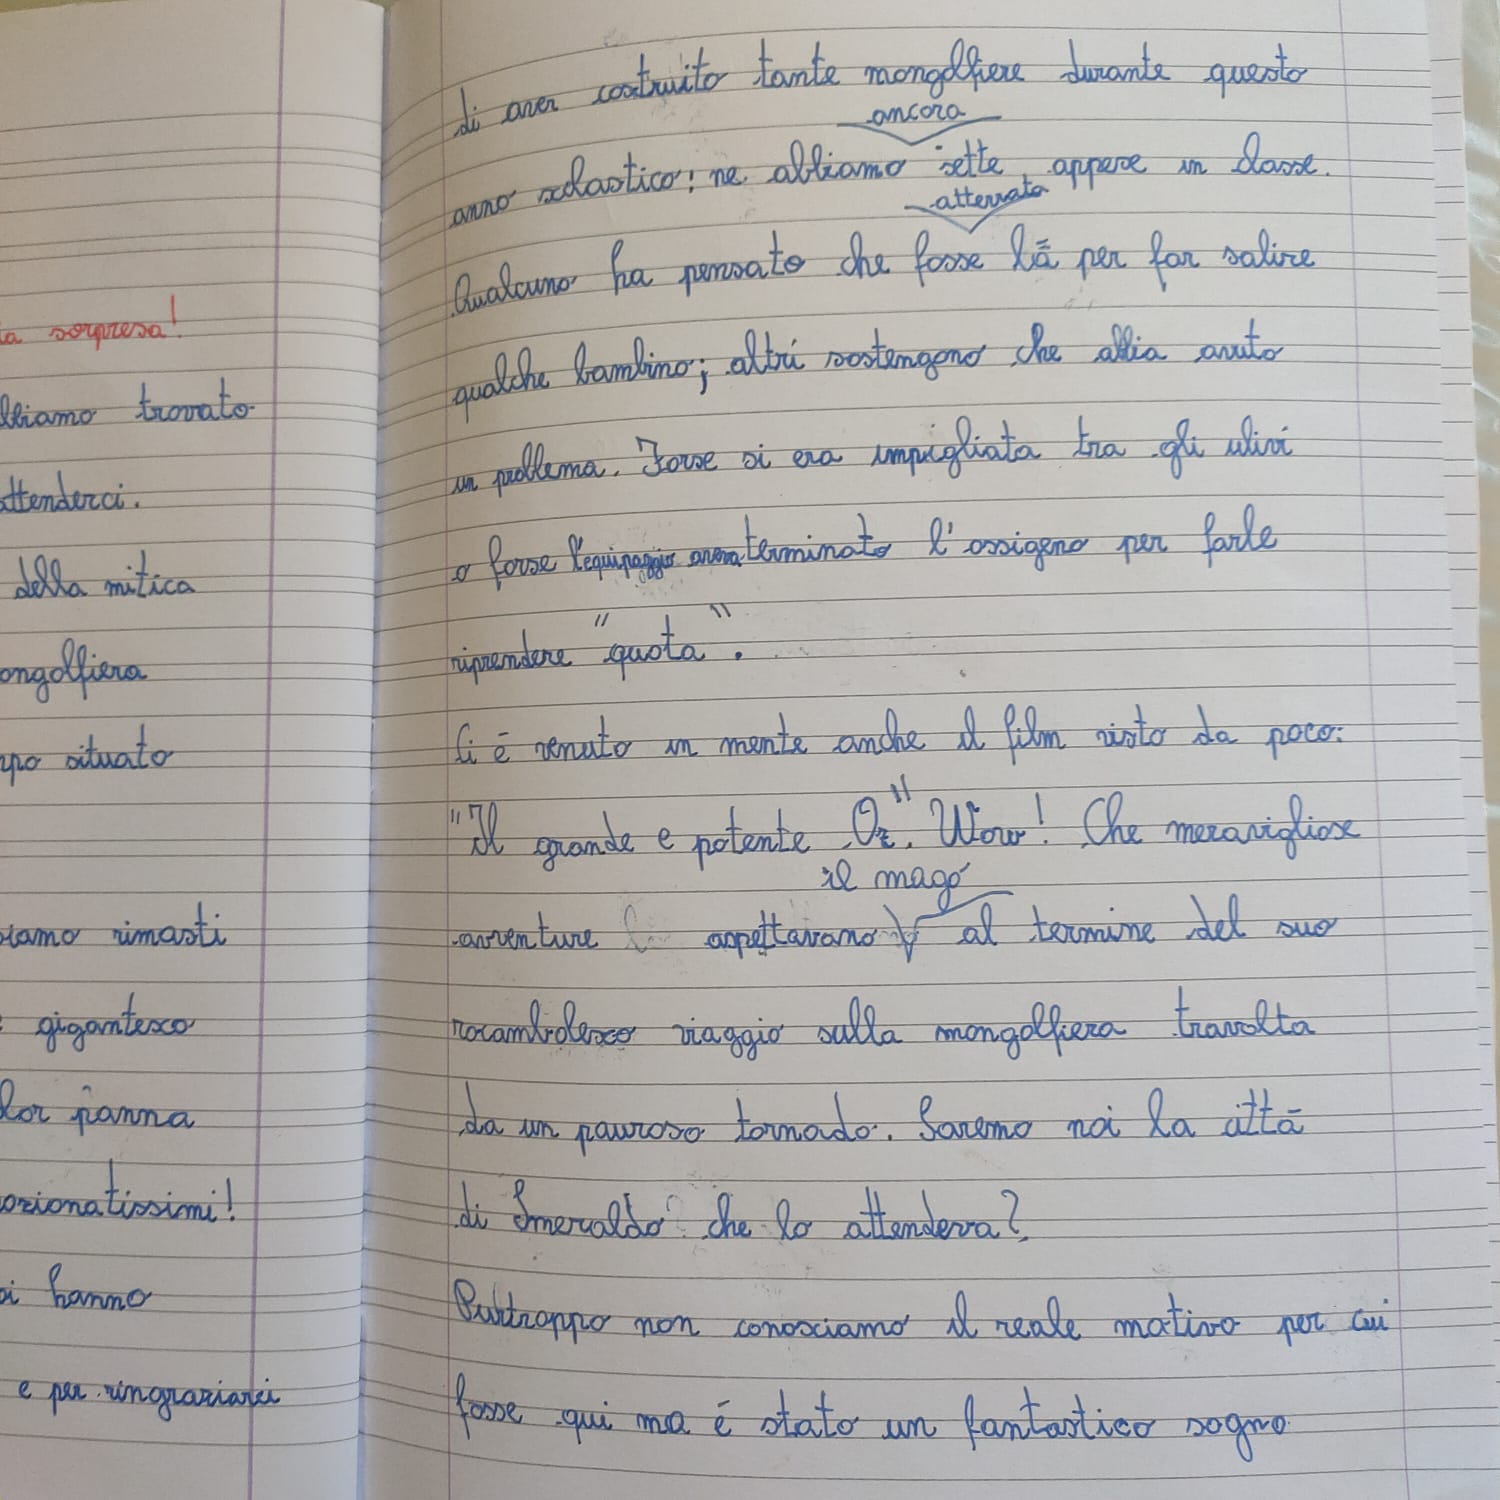 a sorpresa!
bbiamo trovato
attenderci.
della mitica
ongolfiera
mpo situato
siamo rimasti
gigantesco
lor panna
ozionatissimi!
oi hanno
e per ringraziarci
di aver costruito tante mongolfiere durante questo
ancora
anno scolastico: ne abbiamo sette, appese in classe.
atterrata
Qualcuno ha pensato che fosse là per far salire
qualche bambino; altri sostengono che abbia avuto
un problema. Forse si era impigliata tra gli ulivi
o forse l'equipaggio aveva terminato l'ossigeno per farle
riprendere "quota".
Ci è venuto in mente anche il film visto da poco:
"Il grande e potente Oz". Wow! Che meravigliose
il mago
avventure aspettavano al termine del suo
rocambolesco viaggio sulla mongolfiera travolta
da un pauroso tornado. Saremo noi la città
di Smeraldo che lo attendeva?
Purtroppo non conosciamo il reale motivo per cui
fosse qui ma è stato un fantastico sogno